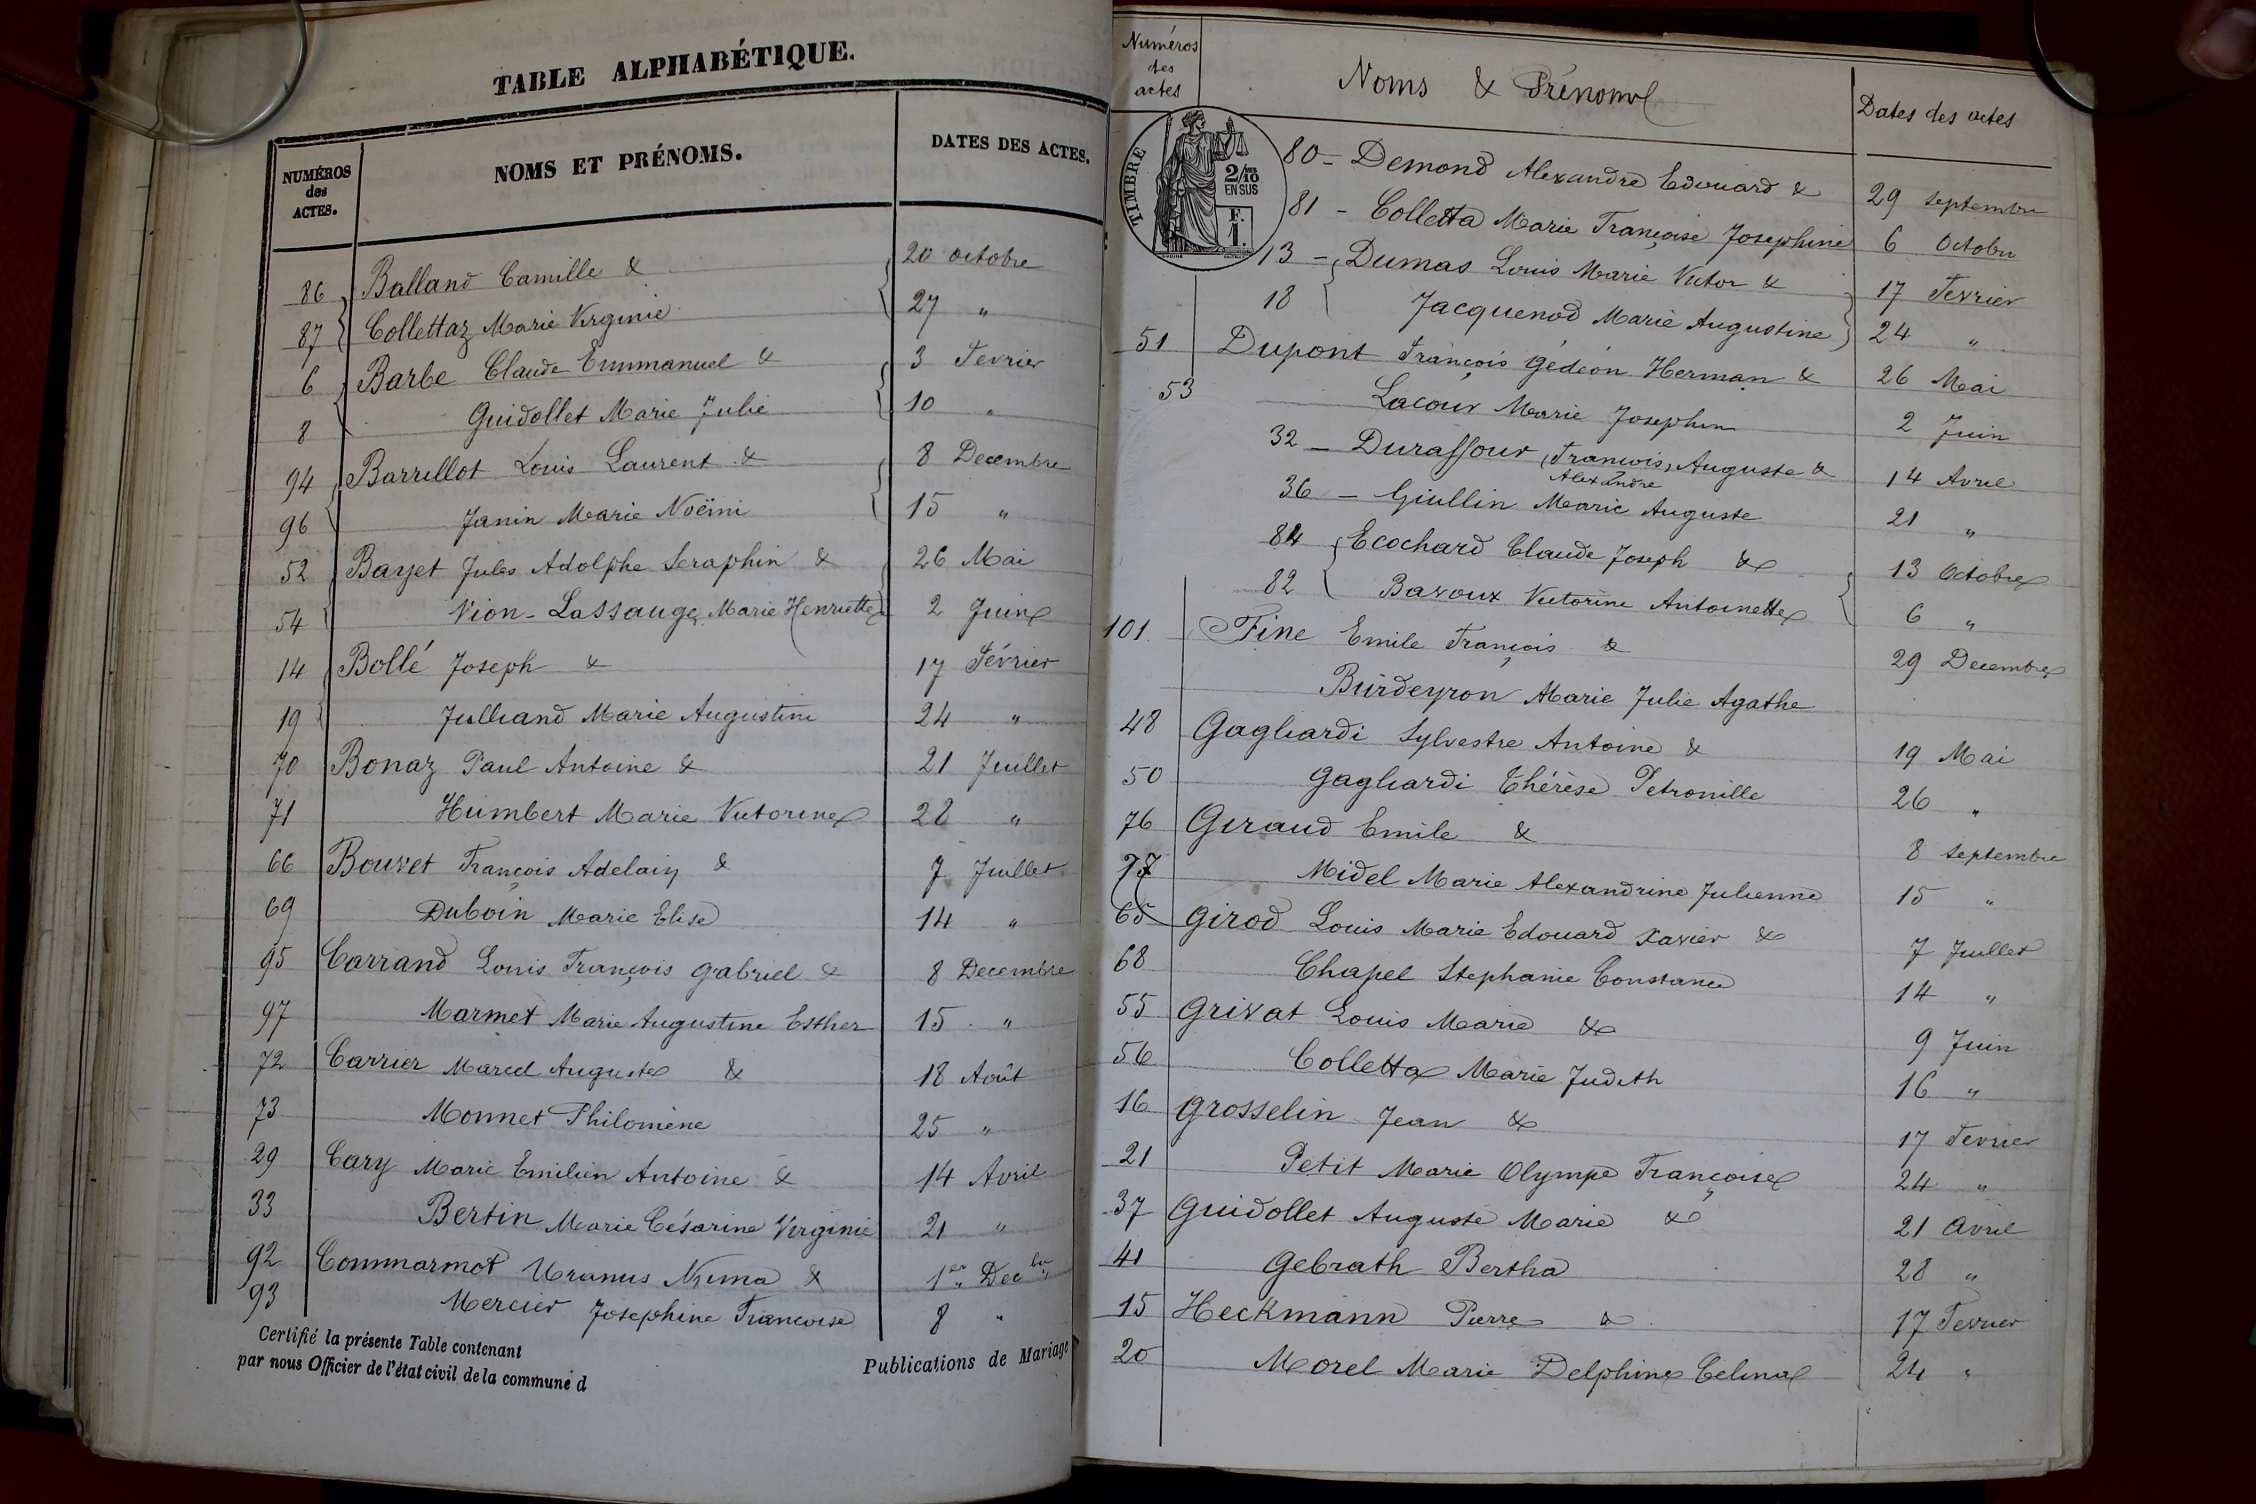 TABLE ALPHABÉTIQUE.
NUMÉROS des ACTES. NOMS ET PRÉNOMS. DATES DES ACTES.
86 Balland Camille & 20 octobre
87 Collettaz Marie Virginie 27 "
6 Barbe Claude Emmanuel & 3 Fevrier
8 Guidollet Marie Julie 10 "
94 Barrellot Louis Laurent & 8 Decembre
96 Janin Marie Noëmi 15 "
52 Bayet Jules Adolphe Seraphin & 26 Mai
54 Vion-Lassauge Marie Henriette 2 Juin
14 Bollé Joseph & 17 Février
19 Julliand Marie Augustine 24 "
70 Bonaz Paul Antoine & 21 Juillet
71 Humbert Marie Victorine 28 "
66 Bouvet François Adelain & 7 Juillet
69 Duboin Marie Elise 14 "
95 Carrand Louis François Gabriel & 8 Decembre
97 Marmet Marie Augustine Esther 15 "
72 Carrier Marcel Auguste & 18 Août
73 Monnet Philomène 25 "
29 Cary Marie Emilien Antoine & 14 Avril
33 Bertin Marie Césarine Virginie 21 "
92 Commarmot Uranus Numa & 1er Decbre
93 Mercier Josephine Francoise 8 "
Certifié la présente Table contenant Publications de Mariage
par nous Officier de l'état civil de la commune d
Numéros des actes Noms & Prénoms Dates des actes
TIMBRE
2/10 EN SUS
F. 1.
80 - Demond Alexandre Edouard & 29 septembre
81 - Colletta Marie Françoise Josephine 6 Octobre
13 - Dumas Louis Marie Victor & 17 Fevrier
18 Jacquenod Marie Augustine 24 "
51 Dupont François Gédéon Herman & 26 Mai
53 Lacour Marie Josephine 2 Juin
32 - Duraffour (Francois) Auguste & 14 Avril
Alexandre
36 - Giullin Marie Auguste 21 "
84 Ecochard Claude Joseph & 13 Octobre
82 Bavoux Victorine Antoinette 6 "
101 Fine Emile François & 29 Decembre
Burdeyron Marie Julie Agathe
48 Gagliardi Sylvestre Antoine & 19 Mai
50 Gagliardi Thérèse Petronille 26 "
76 Geraud Emile & 8 septembre
77 Midel Marie Alexandrine Julienne 15 "
65 Girod Louis Marie Edouard Xavier & 7 Juillet
68 Chapel Stephanie Constance 14 "
55 Grivat Louis Marie & 9 Juin
56 Colletta Marie Judith 16 "
16 Grosselin Jean & 17 Fevrier
21 Petit Marie Olympe Françoise 24 "
37 Guidollet Auguste Marie & 21 Avril
41 Gebrath Bertha 28 "
15 Heckmann Pierre & 17 Fevrier
20 Morel Marie Delphine Celina 24 "